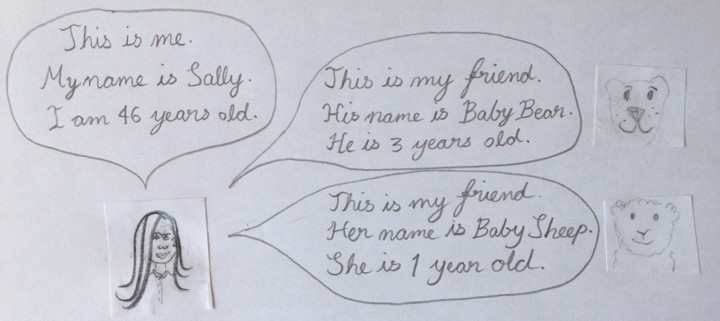 This is me.
My name is Sally.
I am 46 years old.
This is my friend.
His name is Baby Bear.
He is 3 years old.
This is my friend.
Her name is Baby Sheep.
She is 1 year old.